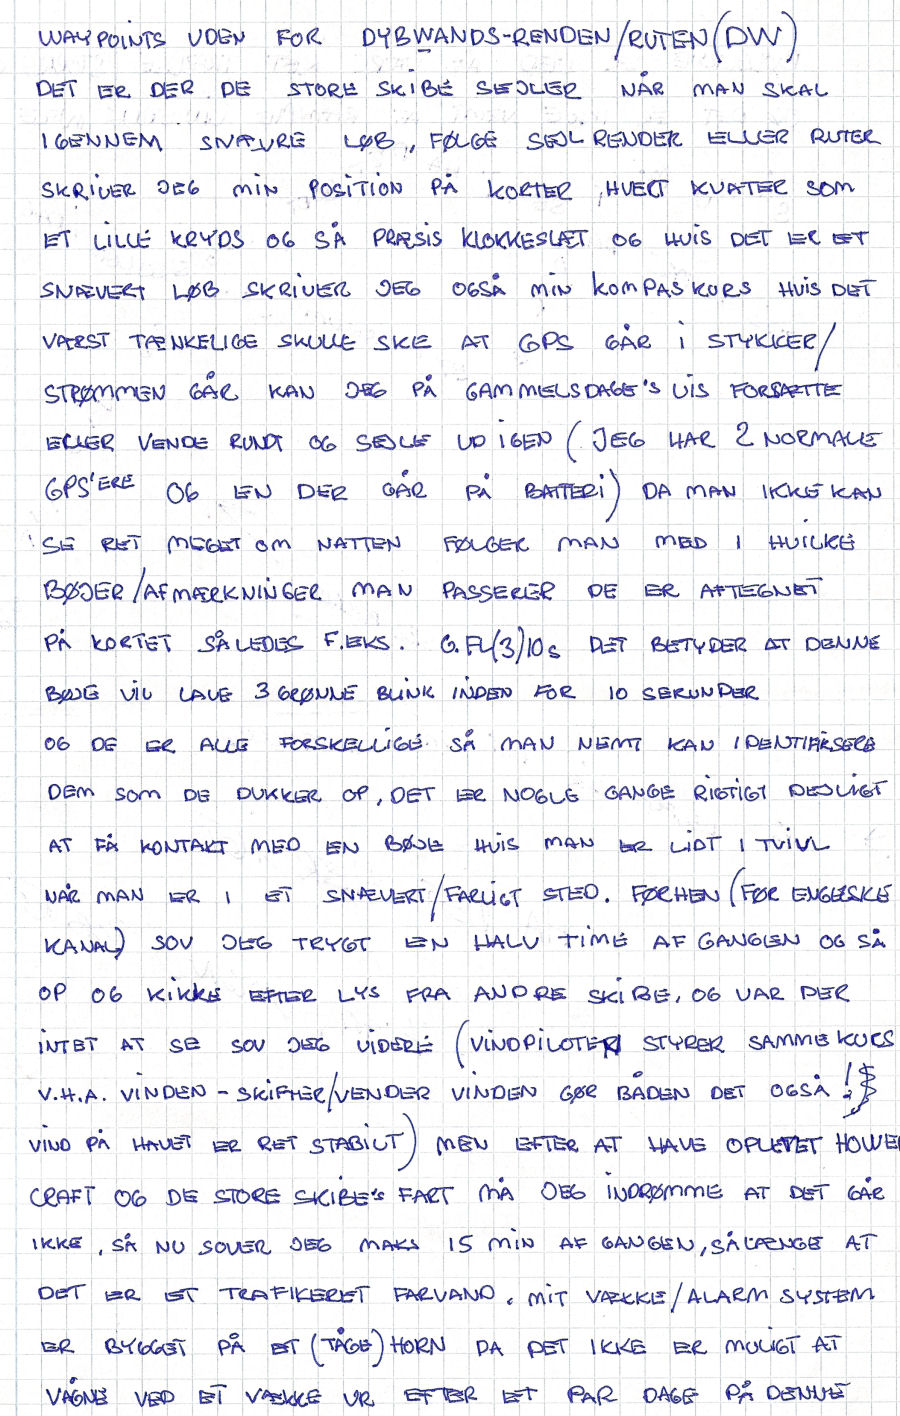 WAYPOINTS UDEN FOR DYBWANDS-RENDEN/RUTEN (DW)
DET ER DER DE STORE SKIBE SEJLER NÅR MAN SKAL
IGENNEM SNÆVRE LØB, FØLGE SEJLRENDER ELLER RUTER
SKRIVER JEG MIN POSITION PÅ KORTER HVERT KVATER SOM
ET LILLE KRYDS OG SÅ PRÆSIS KLOKKESLÆT OG HVIS DET ER ET
SNÆVERT LØB SKRIVER JEG OGSÅ MIN KOMPASKURS HVIS DET
VÆRST TÆNKELIGE SKULLE SKE AT GPS GÅR I STYKKER/
STRØMMEN GÅR KAN JEG PÅ GAMMELSDAGE'S VIS FORSÆTTE
ELLER VENDE RUNDT OG SEJLE UD IGEN (JEG HAR 2 NORMALE
GPS'ERE OG EN DER GÅR PÅ BATTERI) DA MAN IKKE KAN
SE RET MEGET OM NATTEN FØLGER MAN MED I HVILKE
BØJER/AFMÆRKNINGER MAN PASSERER DE ER AFTEGNET
PÅ KORTET SÅLEDES F.EKS. G.FL(3)10s DET BETYDER AT DENNE
BØJE VIL LAVE 3 GRØNNE BLINK INDEN FOR 10 SEKUNDER
OG DE ER ALLE FORSKELLIGE SÅ MAN NEMT KAN IDENTIFISERE
DEM SOM DE DUKKER OP, DET ER NOGLE GANGE RIGTIGT DEJLIGT
AT FÅ KONTAKT MED EN BØJE HVIS MAN ER LIDT I TVIVL
NÅR MAN ER I ET SNÆVERT/FARLIGT STED. FØRHEN (FØR ENGELSKE
KANAL) SOV JEG TRYGT EN HALV TIME AF GANGEN OG SÅ
OP OG KIKKE EFTER LYS FRA ANDRE SKIBE, OG VAR DER
INTET AT SE SOV JEG VIDERE (VINDPILOTEN STYRER SAMME KURS
V.H.A. VINDEN - SKIFTER/VENDER VINDEN GØR BÅDEN DET OGSÅ!
VIND PÅ HAVET ER RET STABILT) MEN EFTER AT HAVE OPLEVET HOWER
CRAFT OG DE STORE SKIBE'S FART MÅ JEG INDRØMME AT DET GÅR
IKKE, SÅ NU SOVER JEG MAKS 15 MIN AF GANGEN, SÅLÆNGE AT
DET ER ET TRAFIKERET FARVAND. MIT VÆKKE/ALARM SYSTEM
ER BYGGET PÅ ET (TÅGE) HORN DA DET IKKE ER MULIGT AT
VÅGNE VED ET VÆKKE UR EFTER ET PAR DAGE PÅ DENNE